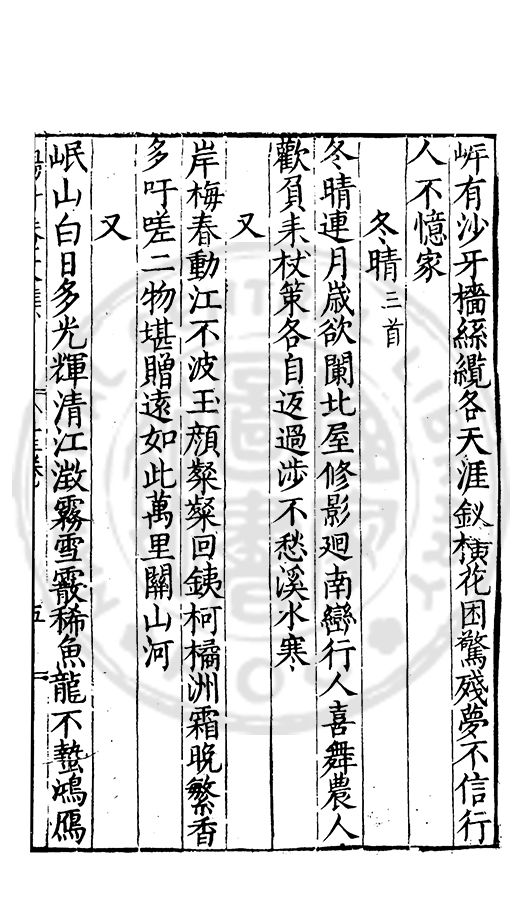 岸有沙牙檣緜纜各天涯釵横花困驚殘夢不信行
人不憶家
冬晴三首
冬晴連月歲欲闌北屋修影廻南巒行人喜舞農人
歡負耒杖策各自返過涉不愁溪水寒
又
岸梅春動江不波玉顔粲粲回銕柯橘洲霜晚繁香
多吁嗟二物堪贈遠如此萬里關山河
又
岷山白日多光輝清江澂霧雪霰稀魚龍不蟄鴻鴈
五